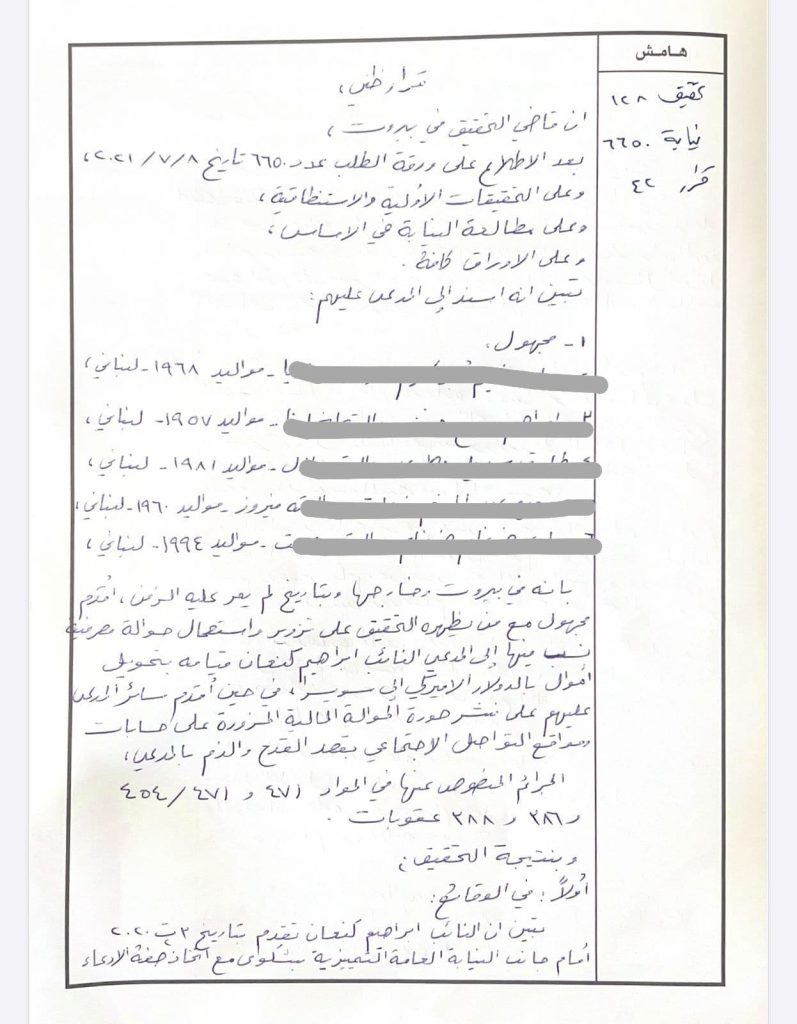 هامش
تحقيق ١٢٨
نيابة ٦٦٥٠
قرار ٤٢
قرار ظني،
ان قاضي التحقيق في بيروت،
بعد الاطلاع على ورقة الطلب عدد ٦٦٥٠ تاريخ ٢٠٢١/٧/٨،
وعلى التحقيقات الأولية والاستنطاقية،
وعلى مطالعة النيابة في الاساس،
وعلى الاوراق كافة.
تبين انه اسند إلى المدعى عليهم:
١- مجهول.
- مواليد ١٩٦٨ - لبناني،
- مواليد ١٩٥٧ - لبناني،
- مواليد ١٩٨١ - لبناني،
فيروز - مواليد ١٩٦٠ - لبناني،
- مواليد ١٩٩٤ - لبناني،
بانه في بيروت وخارجها وبتاريخ لم يمر عليه الزمن، أقدم
مجهول مع من يظهره التحقيق على تزوير واستعمال حوالة مصرفية
نسب فيها إلى المدعي النائب ابراهيم كنعان قيامه بتحويل
أموال بالدولار الاميركي إلى سويسرا، في حين أقدم سائر المدعى
عليهم على نشر صورة الحوالة المالية المزورة على حسابات
ومواقع التواصل الاجتماعي بقصد القدح والذم بالمدعي،
الجرائم المنصوص عنها في المواد ٤٧١ و ٤٥٤/٤٧١
و ٣٨٦ و ٣٨٨ عقوبات.
وبنتيجة التحقيق:
أولاً: في الوقائع:
تبين ان النائب ابراهيم كنعان تقدم بتاريخ ٣ ت٢ ٢٠٢٠
أمام جانب النيابة العامة التمييزية بشكوى مع اتخاذ صفة الادعاء